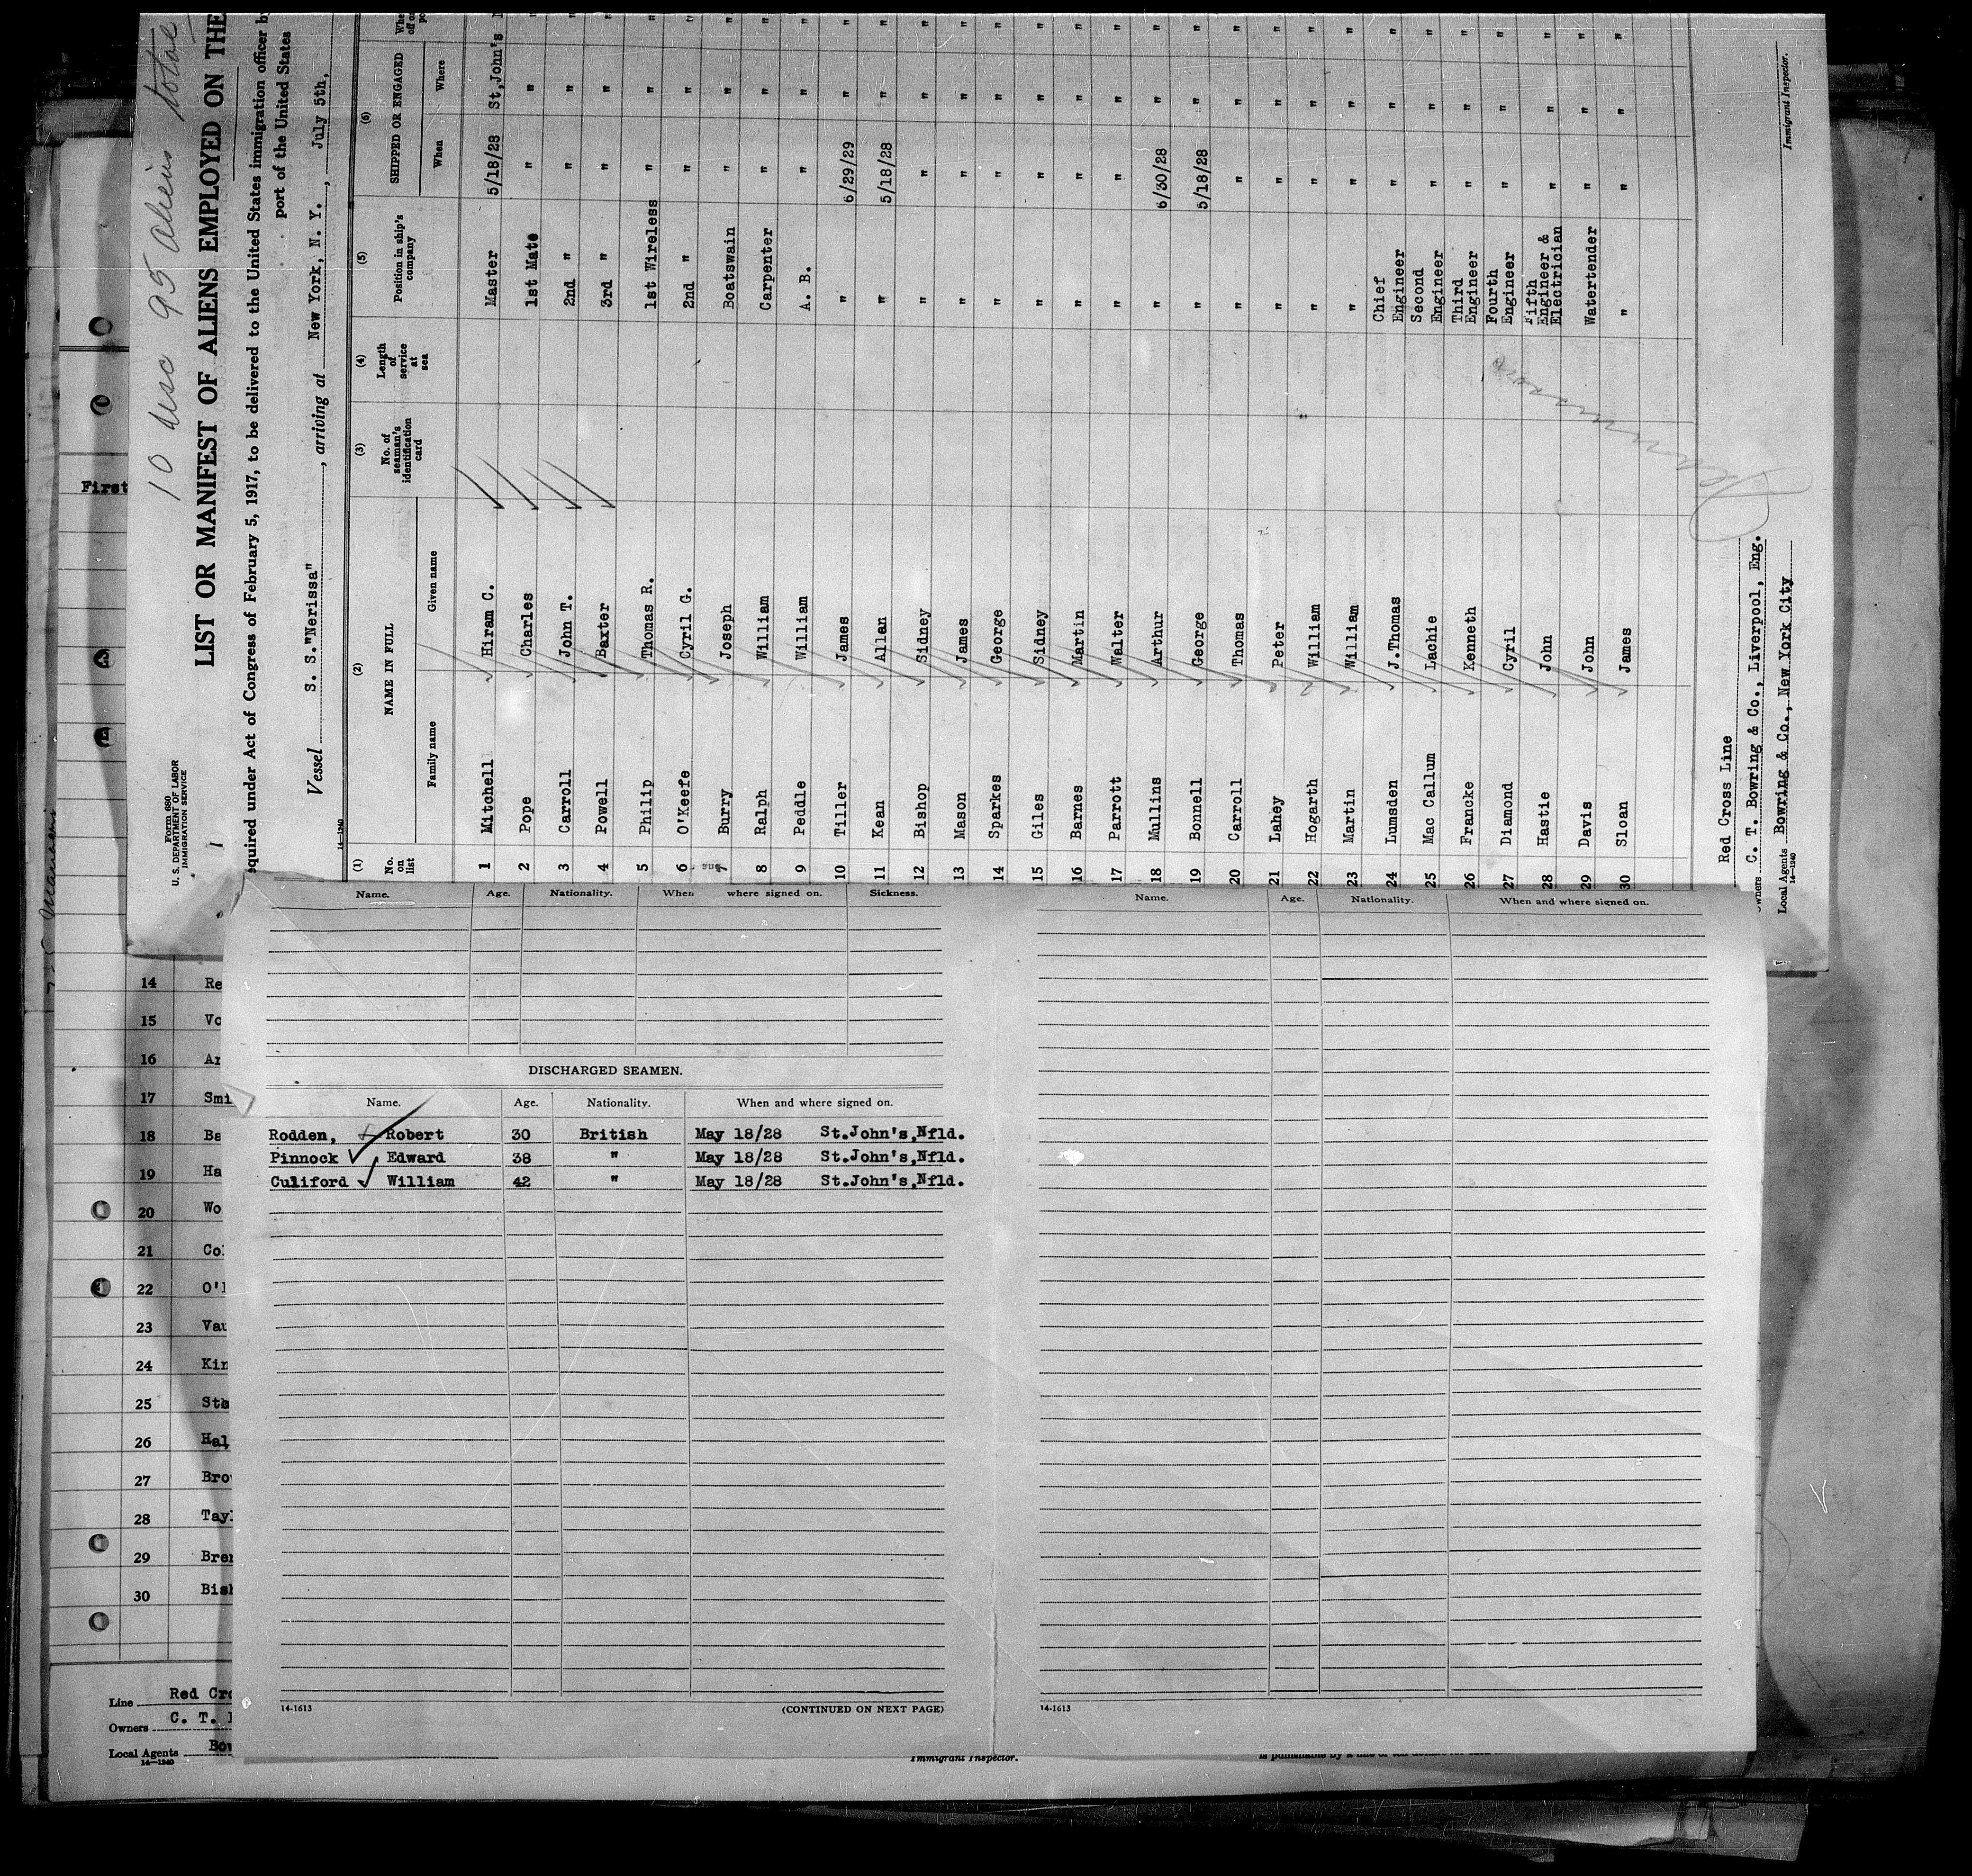 10 desc 95 Aliens total
Form 680
U. S. DEPARTMENT OF LABOR
IMMIGRATION SERVICE
1
LIST OR MANIFEST OF ALIENS EMPLOYED ON THE
equired under Act of Congress of February 5, 1917, to be delivered to the United States immigration officer by
port of the United States
Vessel S. S."Nerissa", arriving at New York, N. Y., July 5th,
14-1240
(1) (2) (3) (4) (5) (6)
No. on list NAME IN FULL No. of seaman's identification card Length of service at sea Position in ship's company SHIPPED OR ENGAGED
Family name Given name When Where
1 Mitchell Hiram C. Master 5/18/28 St,John's
2 Pope Charles 1st Mate " "
3 Carroll John T. 2nd " " "
4 Powell Baxter 3rd " " "
5 Philip Thomas R. 1st Wireless " "
6 O'Keefe Cyril G. 2nd " " "
7 Burry Joseph Boatswain " "
8 Ralph William Carpenter " "
9 Peddle William A. B. " "
10 Tiller James " 6/29/29 "
11 Kean Allan " 5/18/28 "
12 Bishop Sidney " " "
13 Mason James " " "
14 Sparkes George " " "
15 Giles Sidney " " "
16 Barnes Martin " " "
17 Parrott Walter " " "
18 Mullins Arthur " 6/30/28 "
19 Bonnell George " 5/18/28 "
20 Carroll Thomas " " "
21 Lahey Peter " " "
22 Hogarth William " " "
23 Martin William " " "
24 Lumsden J.Thomas Chief Engineer " "
25 Mac Callum Lachie Second Engineer " "
26 Francke Kenneth Third Engineer " "
27 Diamond Cyril Fourth Engineer " "
28 Hastie John Fifth Engineer & Electrician " "
29 Davis John Watertender " "
30 Sloan James " " "
Red Cross Line
Owners C. T. Bowring & Co., Liverpool, Eng.
Local Agents Bowring & Co., New York City
14-1240
Immigrant Inspector.
First
Name. Age. Nationality. When where signed on. Sickness.
DISCHARGED SEAMEN.
Name. Age. Nationality. When and where signed on.
Rodden, Robert 30 British May 18/28 St.John's,Nfld.
Pinnock Edward 38 " May 18/28 St.John's,Nfld.
Culiford William 42 " May 18/28 St.John's,Nfld.
14-1613 (CONTINUED ON NEXT PAGE)
Name. Age. Nationality. When and where signed on.
14-1613
14 Re
15 Vo
16 Ar
17 Smi
18 Ba
19 Ha
20 Wo
21 Col
22 O'
23 Vau
24 Kin
25 Sto
26 Hal
27 Bro
28 Tayl
29 Bren
30 Bish
Line Red Cro
Owners C. T.
Local Agents Bow
14-1240
Immigrant Inspector.